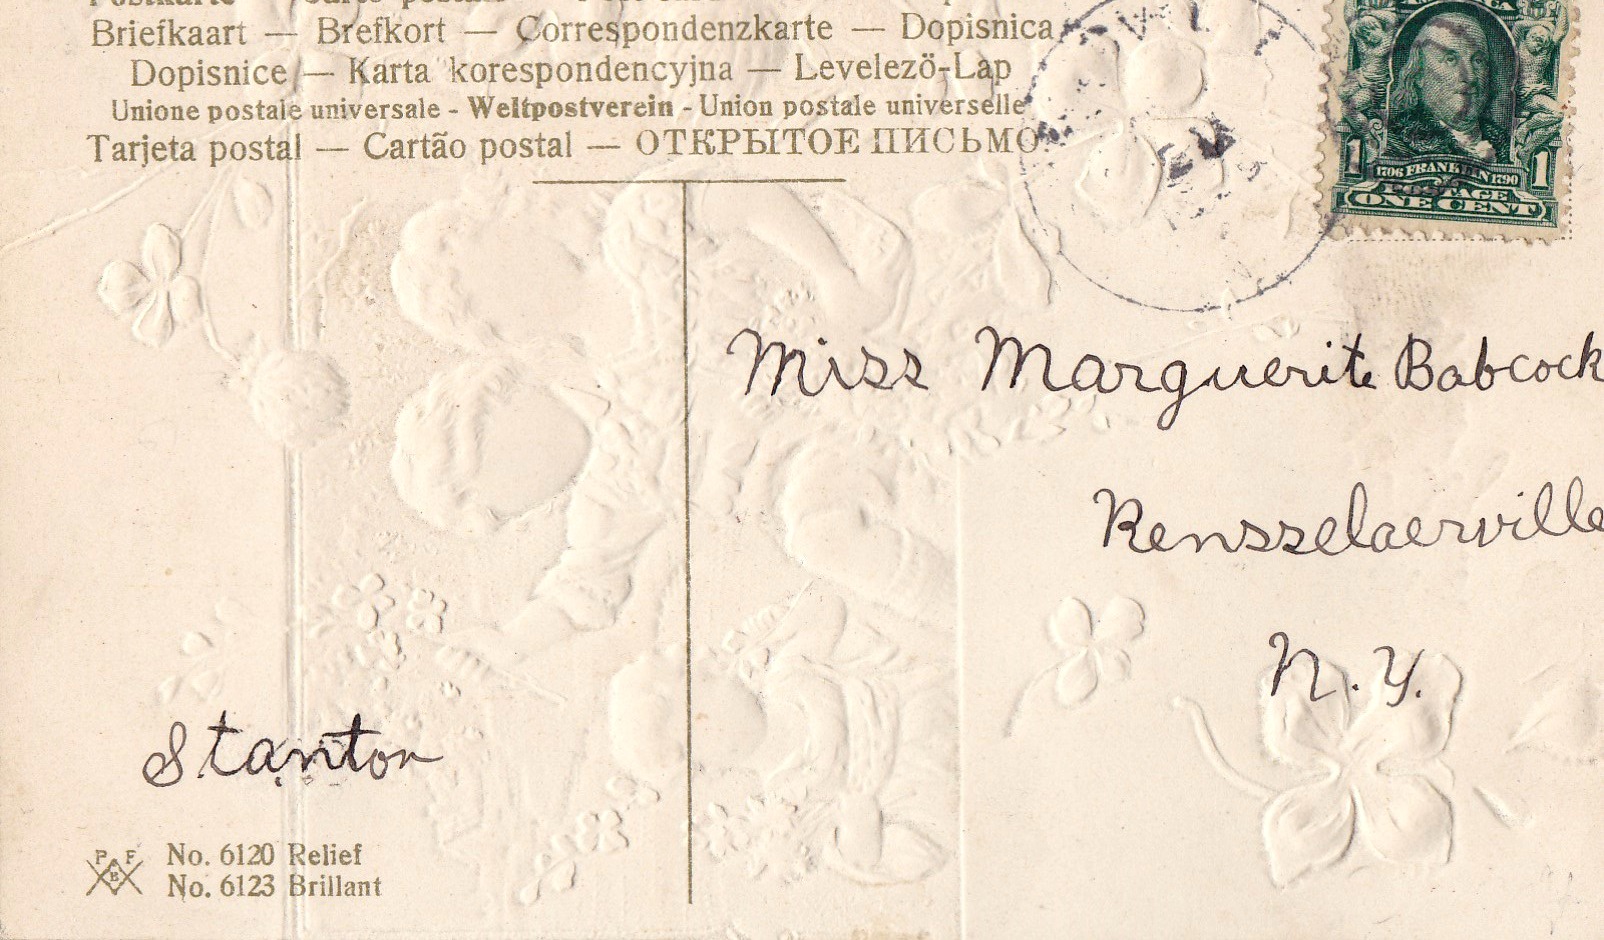 Briefkaart — Brefkort — Correspondenzkarte — Dopisnica
Dopisnice — Karta korespondencyjna — Levelezö-Lap
Unione postale universale - Weltpostverein - Union postale universelle
Tarjeta postal — Cartão postal — ОТКРЫТОЕ ПИСЬМО
1 1706 FRANKLIN 1790 1
ONE CENT
Miss Marguerite Babcock
Rensselaerville
N.Y.
Stanton
P F
B
No. 6120 Relief
No. 6123 Brillant